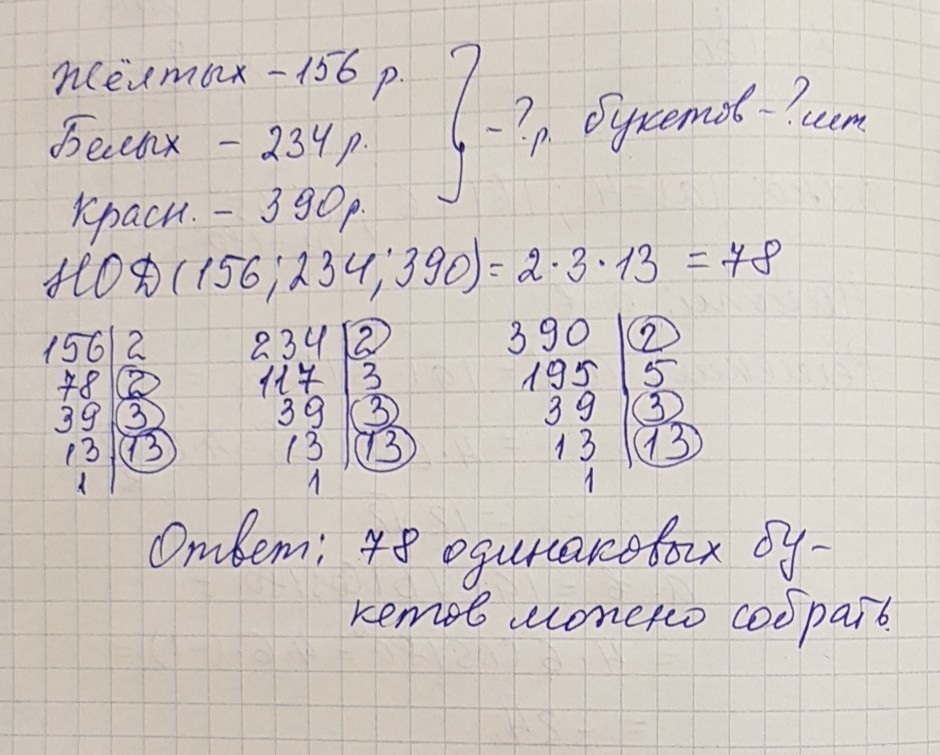 Жёлтых – 156 р.
Белых – 234 р.
Красн. – 390 р.
} – ? р. букетов – ? шт
НОД (156; 234; 390) = 2 · 3 · 13 = 78
156 | 2 234 | 2 390 | 2
78 | 2 117 | 3 195 | 5
39 | 3 39 | 3 39 | 3
13 | 13 13 | 13 13 | 13
1 1 1
Ответ: 78 одинаковых бу-
кетов можно собрать.